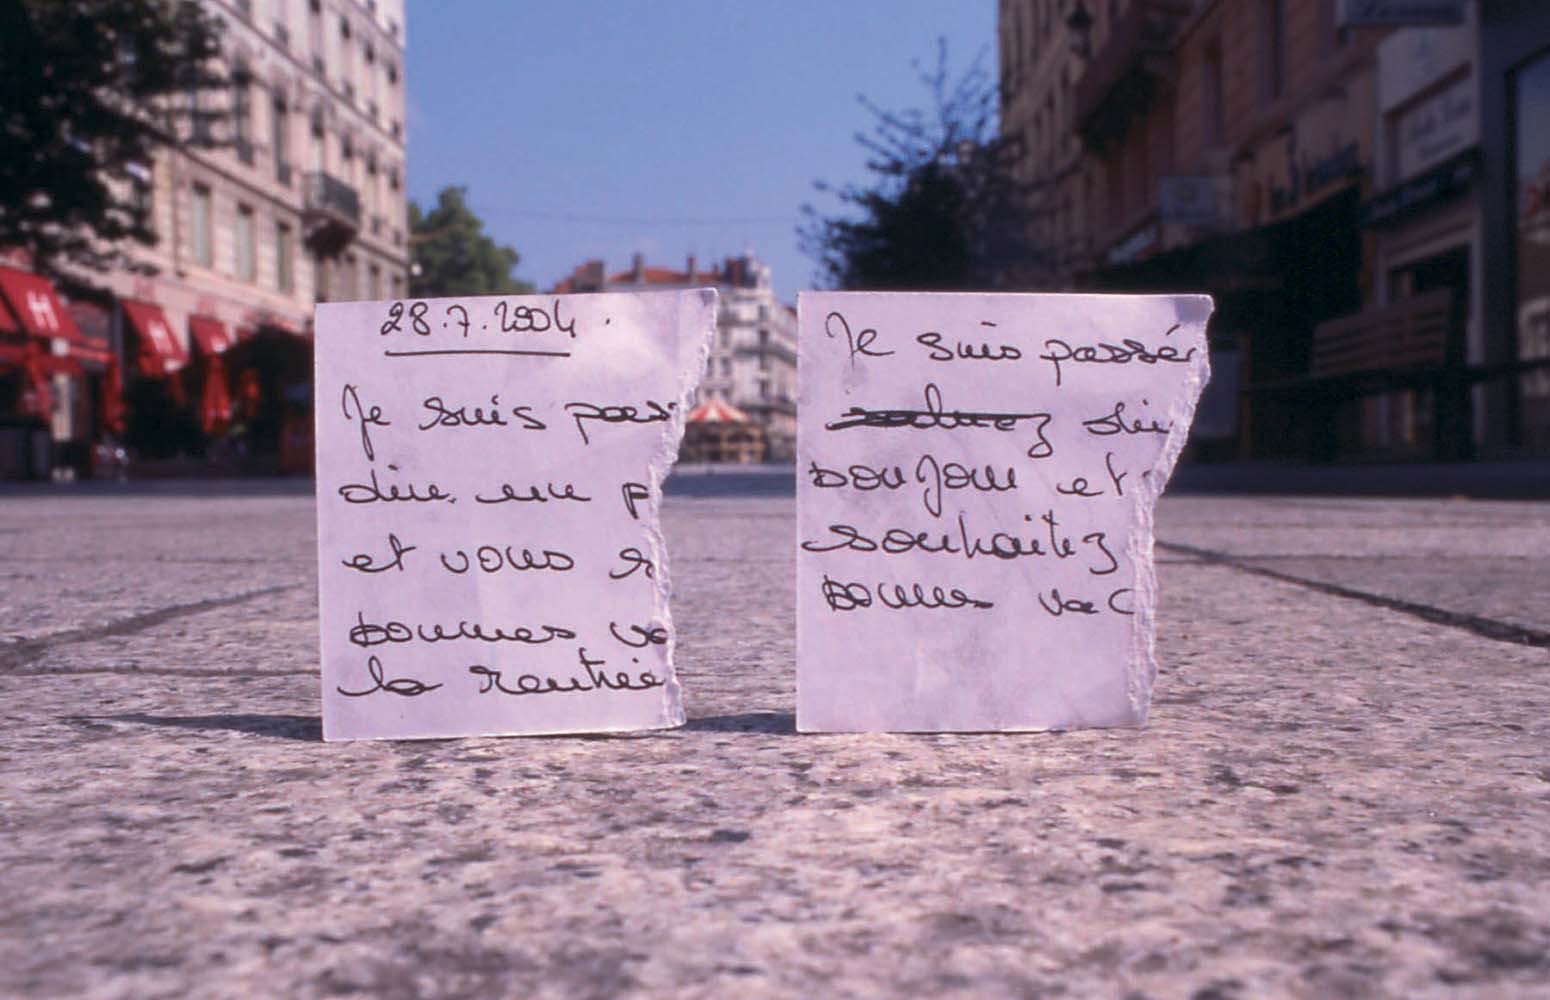 28.7.2004.
Je suis pas
dire un p
et vous s
bonnes va
la rentrée
Je suis passér
dir
bonjour et
souhaitez
bonnes vac
H
H